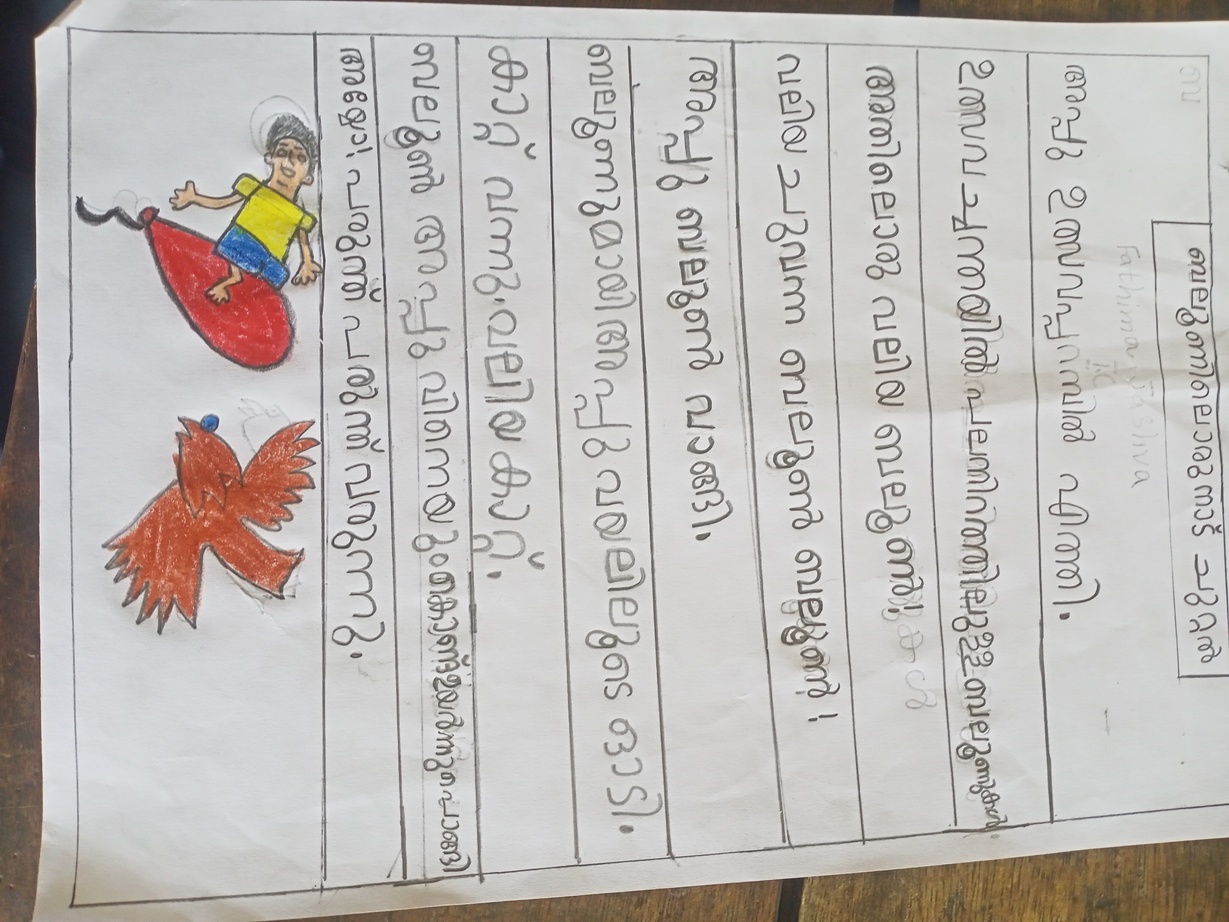 ബ
ബലൂണിലൊരു നാട് ചുറ്റൽ
Fathima
അപ്പു ഉത്സവപ്പറമ്പിൽ എത്തി.
ഉത്സവ ചന്തയിൽ പലതരത്തിലുള്ള ബലൂണുകൾ.
അതിലൊരു വലിയ ബലൂൺ!
വലിയ ചുവന്ന ബലൂൺ ബലൂൺ!
അപ്പു ബലൂൺ വാങ്ങി.
ബലൂണുമായി അപ്പു വയലിലൂടെ ഓടി.
കാറ്റ് വന്നു. വലിയ കാറ്റ്.
ബലൂൺ അപ്പു പിടിന്നയും കൊണ്ട് ഉയർന്നു പൊങ്ങി
അയ്യോ! പരുന്ത് പറന്ന് വരുന്നു.